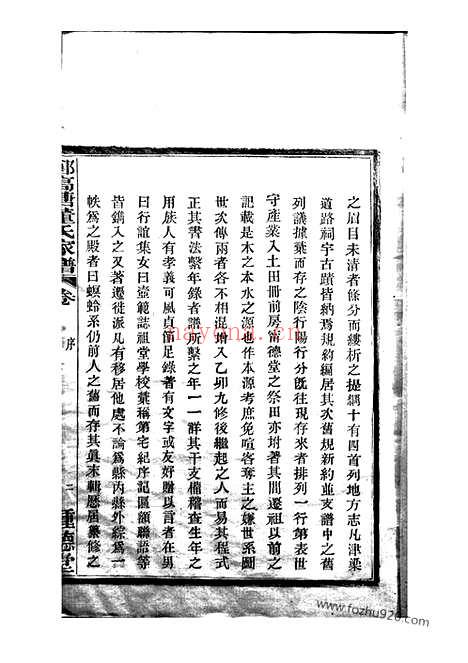 之眉目未清者條分而縷析之提綱十有四首列地方志凡津梁
道路祠宇古蹟皆納焉規約編居其次舊規新約並支譜中之舊
列議據棄而存之陰行陽行分旣往現存來者排列一行第表世
守產業入土田冊前房需德堂之祭田亦坿著其間遷祖以前之
記載是木之本水之源也作本源考庶免喧客奪主之嫌世系圖
世次傳兩者各不相混溯入乙卯九修後繼起之人而易其程式
正其書法繫年錄者譜所繫之年一一詳其干支櫳稽查生年之
用族人有孝義可風貞節足錄者有文字或友好贈以言者在男
曰行誼集女曰壺範誌祖堂學校葉稱第宅紀序記區額聯語等
皆鐫入之又著遷徙派凡有移居他處不論爲縣內縣外綜爲一
帙爲之殿者曰螟蛉系仍前人之舊而存其眞末輯歷屆纂修之
高塘董氏家譜 卷 序
種德堂
nayona.cn
www.fozhu920.com